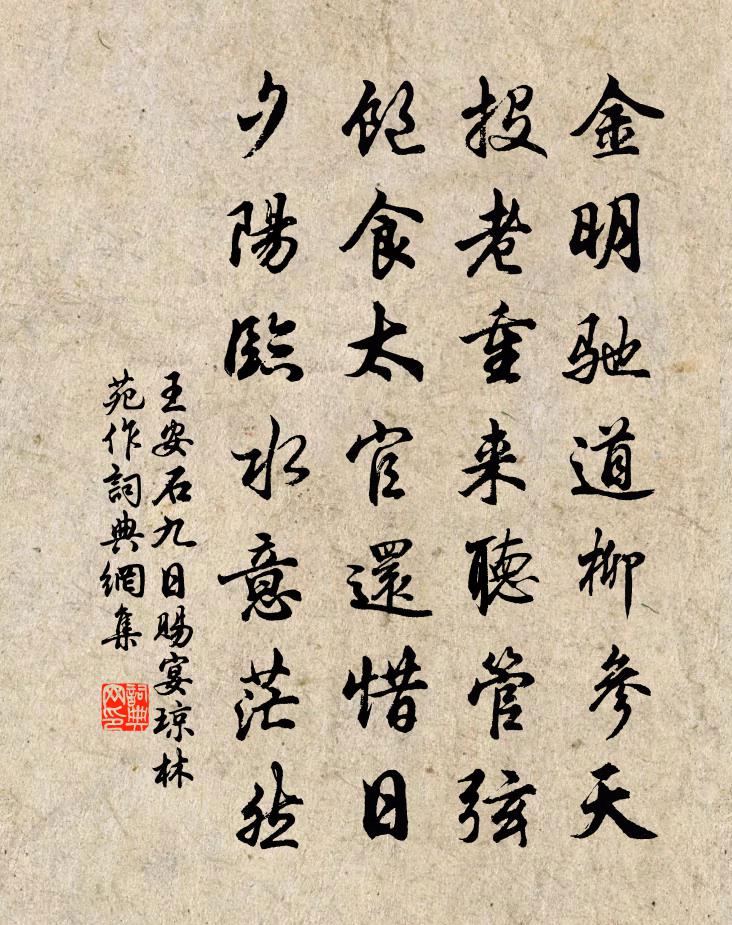 金明馳道柳參天
投老重来聽管弦
飽食太官還惜日
夕陽臨水意茫然
王安石九日賜宴琼林
苑作詞典網集
詞典
网印